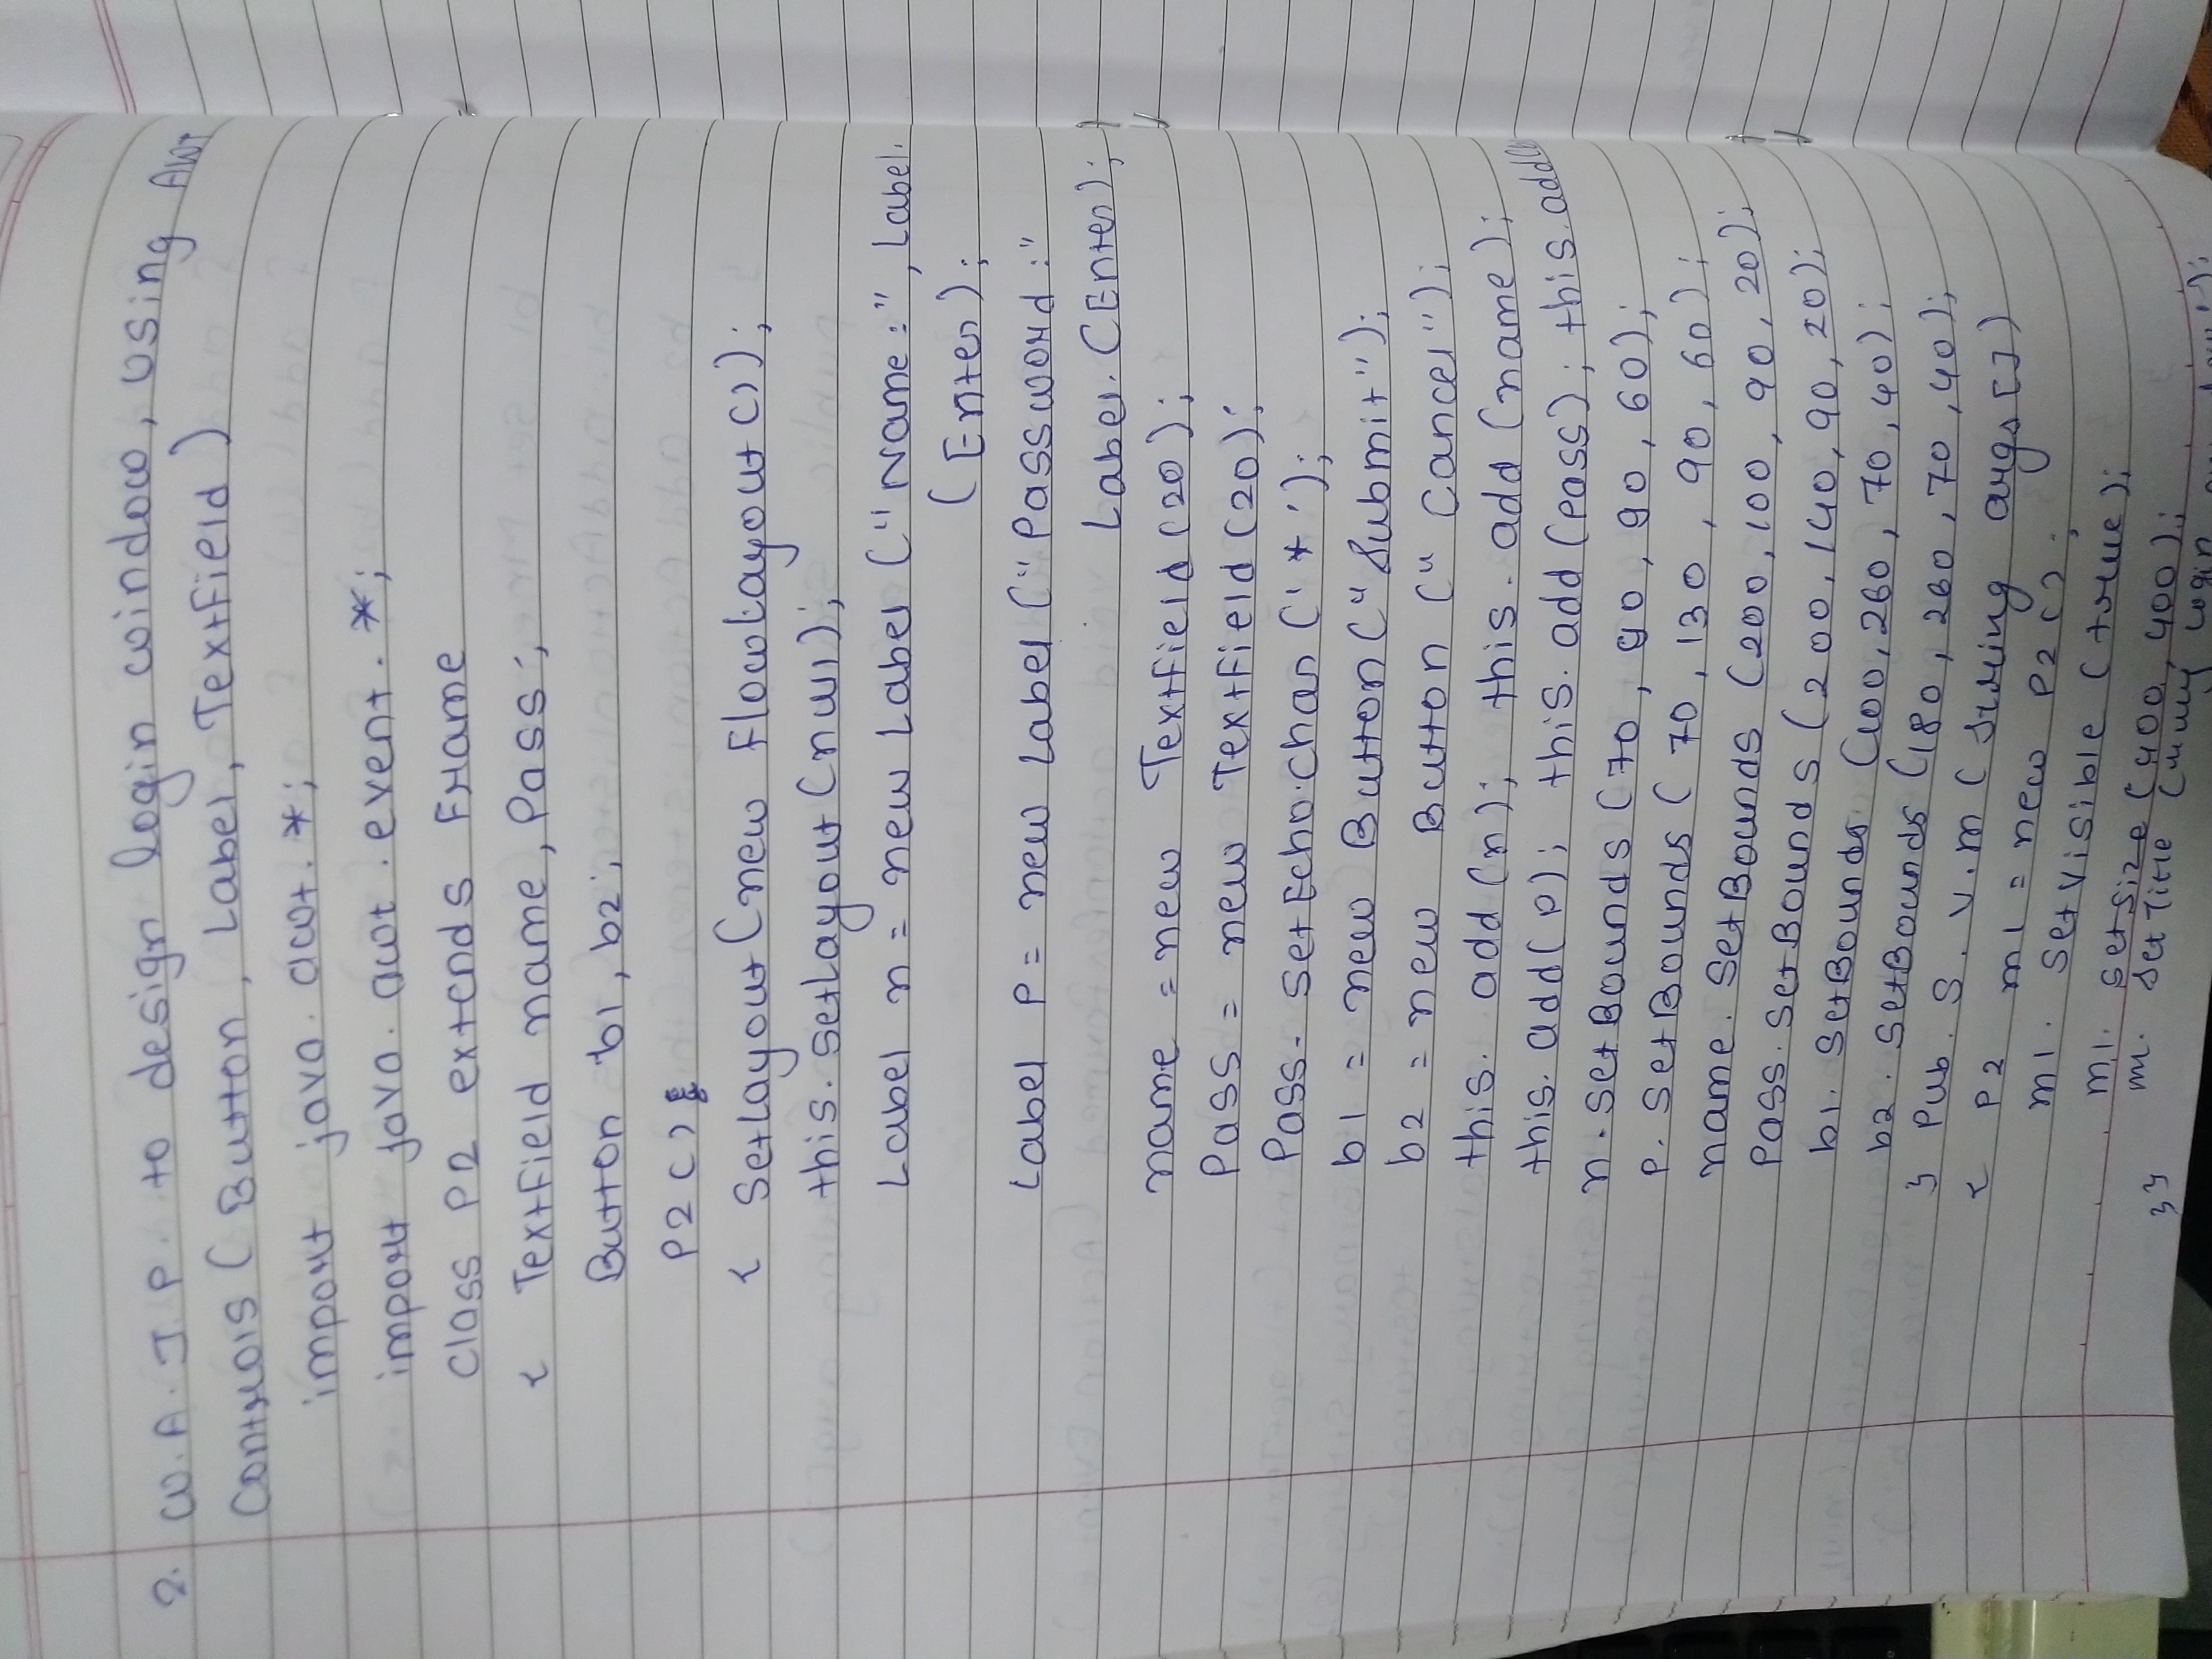 2. W.A.J.P. to design login window, using AWT
Controls (Button, Label, TextField)
import java.awt.*;
import java.awt.event.*;
class P2 extends Frame
{ TextField name, Pass;
Button b1, b2;
P2()
{ SetLayout(new FlowLayout());
this.setLayout(null);
Label n = new Label ("Name:", Label.
(Enter);
Label P = new Label ("Password:"
Label.(Enter);
name = new TextField(20);
Pass = new TextField(20);
Pass. setEcho.Char ('*');
b1 = new Button("Submit");
b2 = new Button ("Cancel");
this. add (n); this. add (name);
this. add(p); this. add (pass); this.add(
n.setBounds (70, 90, 90, 60);
p. SetBounds (70, 130, 90, 60);
name. SetBounds (200, 100, 90, 20);
Pass. SetBounds (200, 140, 90, 20);
b1. SetBounds (100, 260, 70, 40);
b2. SetBounds (180, 260, 70, 40);
} Pub. S. V.m (String args[])
{ P2 m1 = new P2();
m1. SetVisible (true);
m1. setSize (400, 400);
}} m1. SetTitle ( Login